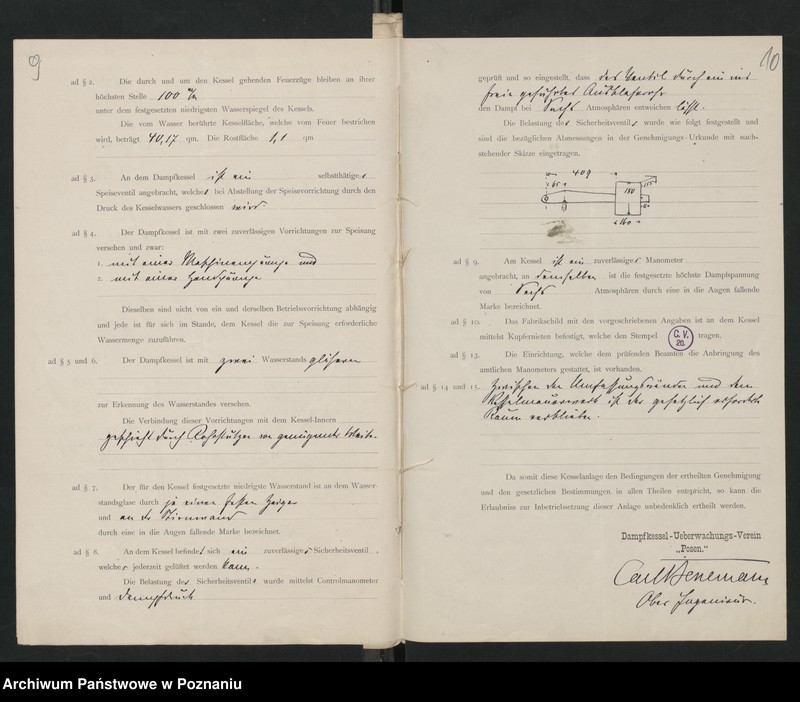 9
ad § 2. Die durch und um den Kessel gehenden Feuerzüge bleiben an ihrer
höchsten Stelle 100 m/m
unter dem festgesetzten niedrigsten Wasserspiegel des Kessels.
Die vom Wasser berührte Kesselfläche, welche vom Feuer bestrichen
wird, beträgt 40,17 qm. Die Rostfläche 1,1 qm
ad § 3. An dem Dampfkessel ist ein selbstthätiges
Speiseventil angebracht, welches bei Abstellung der Speisevorrichtung durch den
Druck des Kesselwassers geschlossen wird.
ad § 4. Der Dampfkessel ist mit zwei zuverlässigen Vorrichtungen zur Speisung
versehen und zwar:
1. mit einer Maschinenpumpe und
2. mit einer Handpumpe
Dieselben sind nicht von ein und derselben Betriebsvorrichtung abhängig
und jede ist für sich im Stande, dem Kessel die zur Speisung erforderliche
Wassermenge zuzuführen.
ad § 5 und 6. Der Dampfkessel ist mit zwei Wasserstands gläsern
zur Erkennung des Wasserstandes versehen.
Die Verbindung dieser Vorrichtungen mit dem Kessel-Innern
geschieht durch Rohrstutzen von genügender Weite.
ad § 7. Der für den Kessel festgesetzte niedrigste Wasserstand ist an dem Wasser
standsglase durch je einen festen Zeiger
und an der Stirnwand
durch eine in die Augen fallende Marke bezeichnet.
ad § 8. An dem Kessel befindet sich ein zuverlässiges Sicherheitsventil,
welches jederzeit gelüftet werden kann.
Die Belastung des Sicherheitsventils wurde mittelst Controlmanometer
und Dampfdruck
10
geprüft und so eingestellt, dass das Ventil durch ein ins
freie geführtes Ausblaserohr
den Dampf bei Sechs Atmosphären entweichen läßt.
Die Belastung des Sicherheitsventils wurde wie folgt festgestellt und
sind die bezüglichen Abmessungen in der Genehmigungs-Urkunde mit nach-
stehender Skizze eingetragen.
409
65
180
155
160
ad § 9. Am Kessel ist ein zuverlässiges Manometer
angebracht, an demselben ist die festgesetzte höchste Dampfspannung
von Sechs Atmosphären durch eine in die Augen fallende
Marke bezeichnet.
ad § 10. Das Fabrikschild mit den vorgeschriebenen Angaben ist an dem Kessel
mittelst Kupfernieten befestigt, welche den Stempel C.V. 20. tragen.
ad § 13. Die Einrichtung, welche dem prüfenden Beamten die Anbringung des
amtlichen Manometers gestattet, ist vorhanden.
ad § 14 und 15. Zwischen den Umfassungswänden und dem
Kesselmauerwerk ist der gesetzlich erforderl.
Raum verblieben.
Da somit diese Kesselanlage den Bedingungen der ertheilten Genehmigung
und den gesetzlichen Bestimmungen in allen Theilen entspricht, so kann die
Erlaubniss zur Inbetriebsetzung dieser Anlage unbedenklich ertheilt werden.
Dampfkessel-Ueberwachungs-Verein
„Posen."
Carl Benemann
Ober Ingenieur.
Archiwum Państwowe w Poznaniu